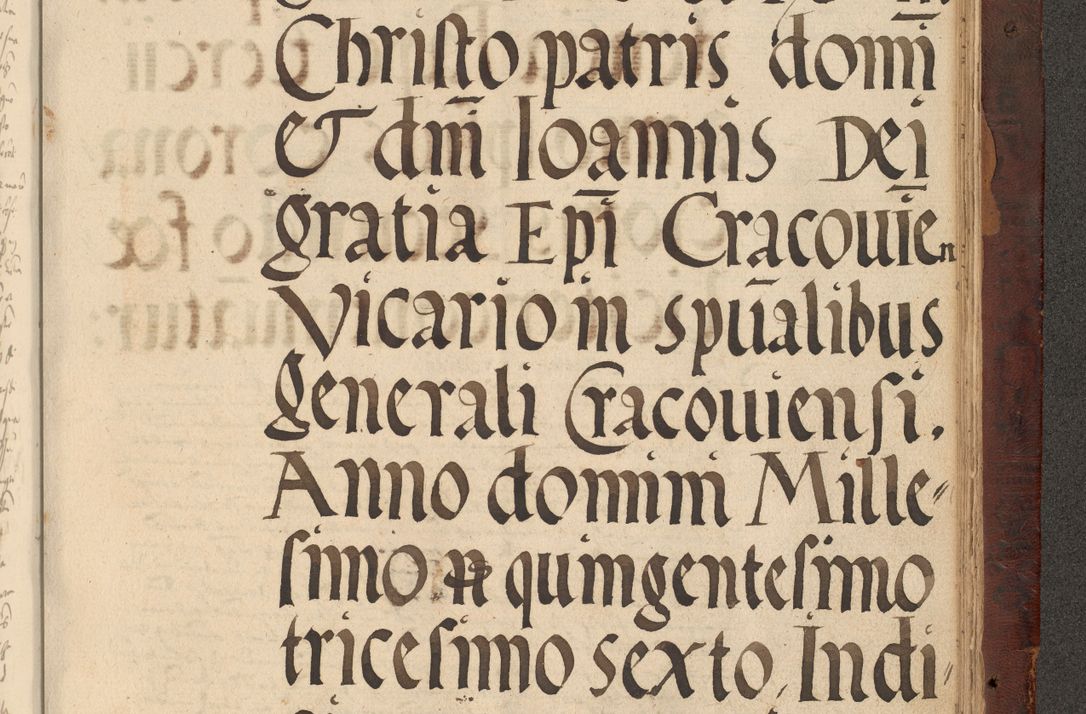 Christo patris domī
et dm̄ Ioannis Dei
gratia Ep̄i Cracouīen
Vicario in spūalibus
generali Cracouiensi.
Anno domini Mille〃
simo quingentesimo
tricesimo sexto, Indi〃